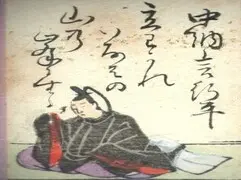 中納言行平
立わかれ
いなはの
山乃